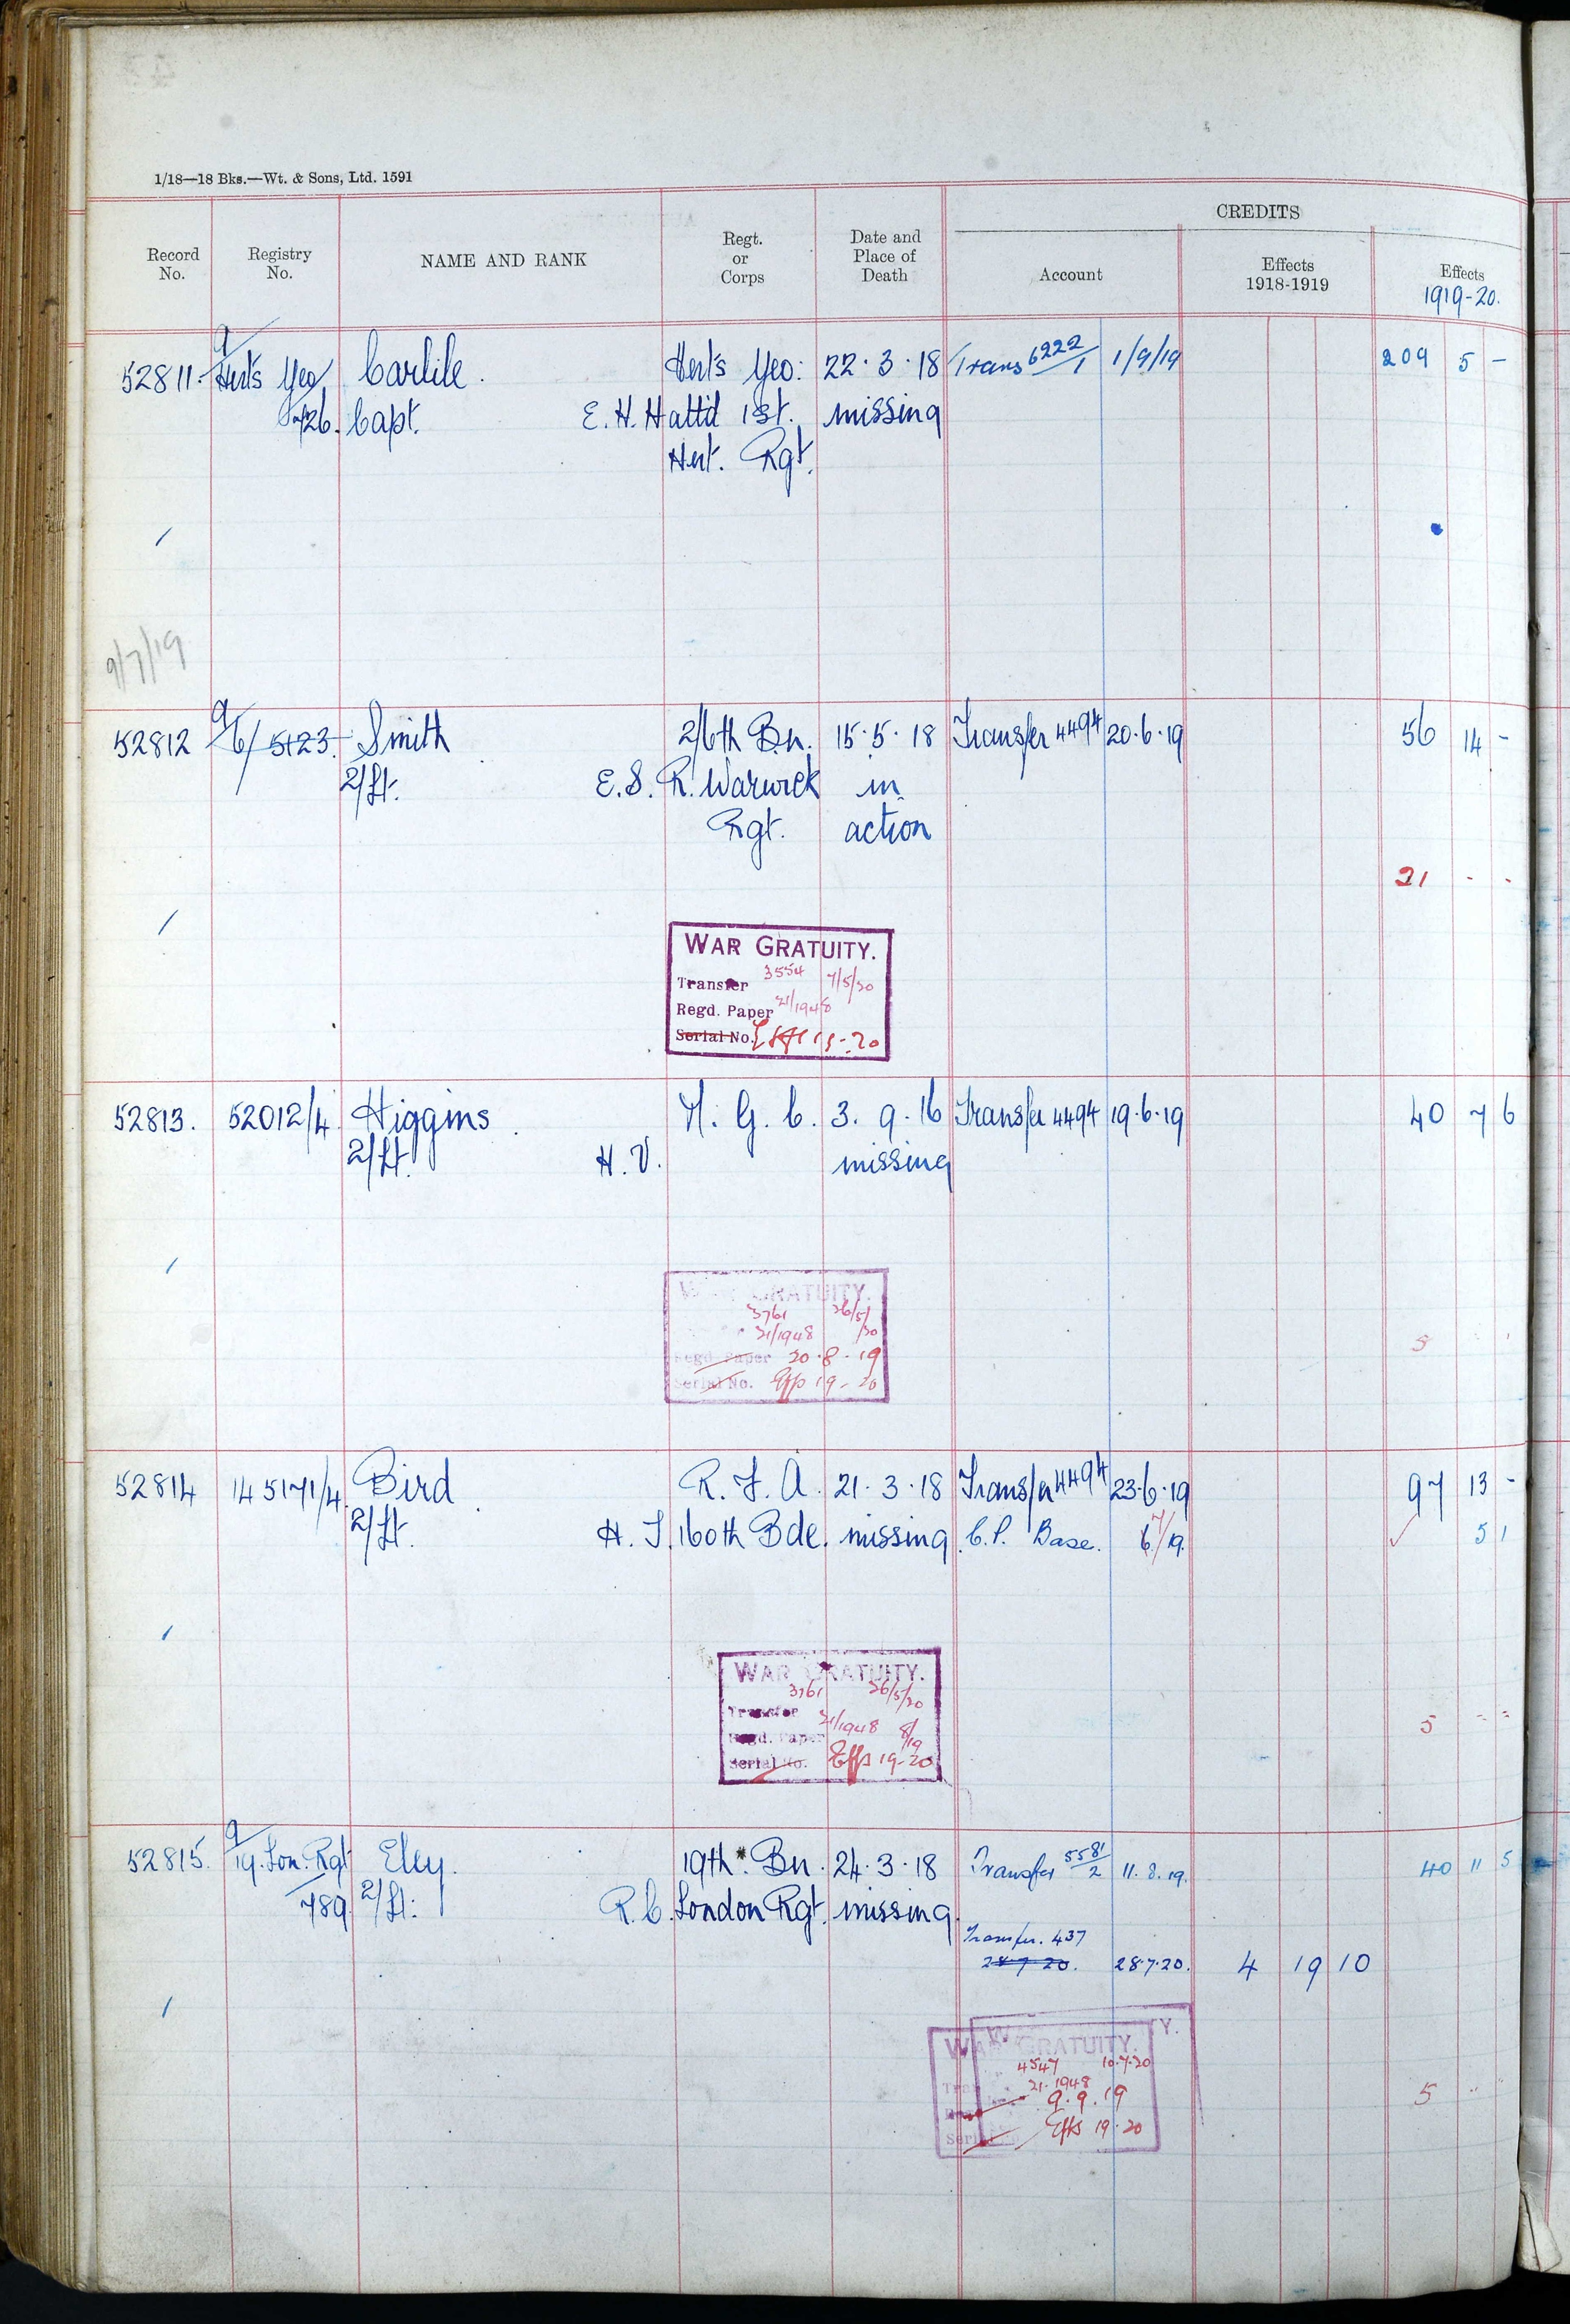 1/18—18 Bks.—Wt. & Sons, Ltd. 1591
Record No.
Registry No.
NAME AND RANK
Regt. or Corps
Date and Place of Death
CREDITS
Account
Effects 1918-1919
Effects 1919-20.
52811. 9/Hert's Yeo Carlile. Hert's Yeo: 22.3.18 Trans 6222/1 1/9/19 209 5 -
/26. Capt. E. H. Att'd 1st. missing
Hert. Rgt.
9/7/19
52812 9/6/5123 Smith 2/6th Bn. 15.5.18 Transfer 4494 20.6.19 56 14 -
2/Lt. E. S. R. Warwick in
Rgt. action
21 - -
WAR GRATUITY.
Transfer 3554 7/5/20
Regd. Paper 21/1948
Serial No. 19-20
52813. 52012/4 Higgins M. G. C. 3.9.16 Transfer 4494 19.6.19 40 7 6
2/Lt. H. V. missing
WAR GRATUITY.
3761 26/5/20
21/1948
Regd. Paper 20.8.19
Serial No. Effs 19-20
5
52814 145171/4 Bird R. F. A. 21.3.18 Transfer 4494 23.6.19 97 13 -
2/Lt. H. J. 160th Bde. missing C.P. Base. 6/7/19. 5 1
WAR GRATUITY.
3761 26/5/20
Transfer
Regd. Paper 21/1948 8/19
Serial No. Effs 19-20
5 - -
52815. 9/19.Lon.Rgt Eley. 19th Bn. 24.3.18 Transfer 5581/2 11.8.19. 40 11 5
789 2/Lt. R. C. London Rgt. missing.
Transfer. 437
28.7.20. 28.7.20. 4 19 10
WAR GRATUITY.
4547 10.7.20
21.1948
9.9.19
Serial Effs 19-20
5